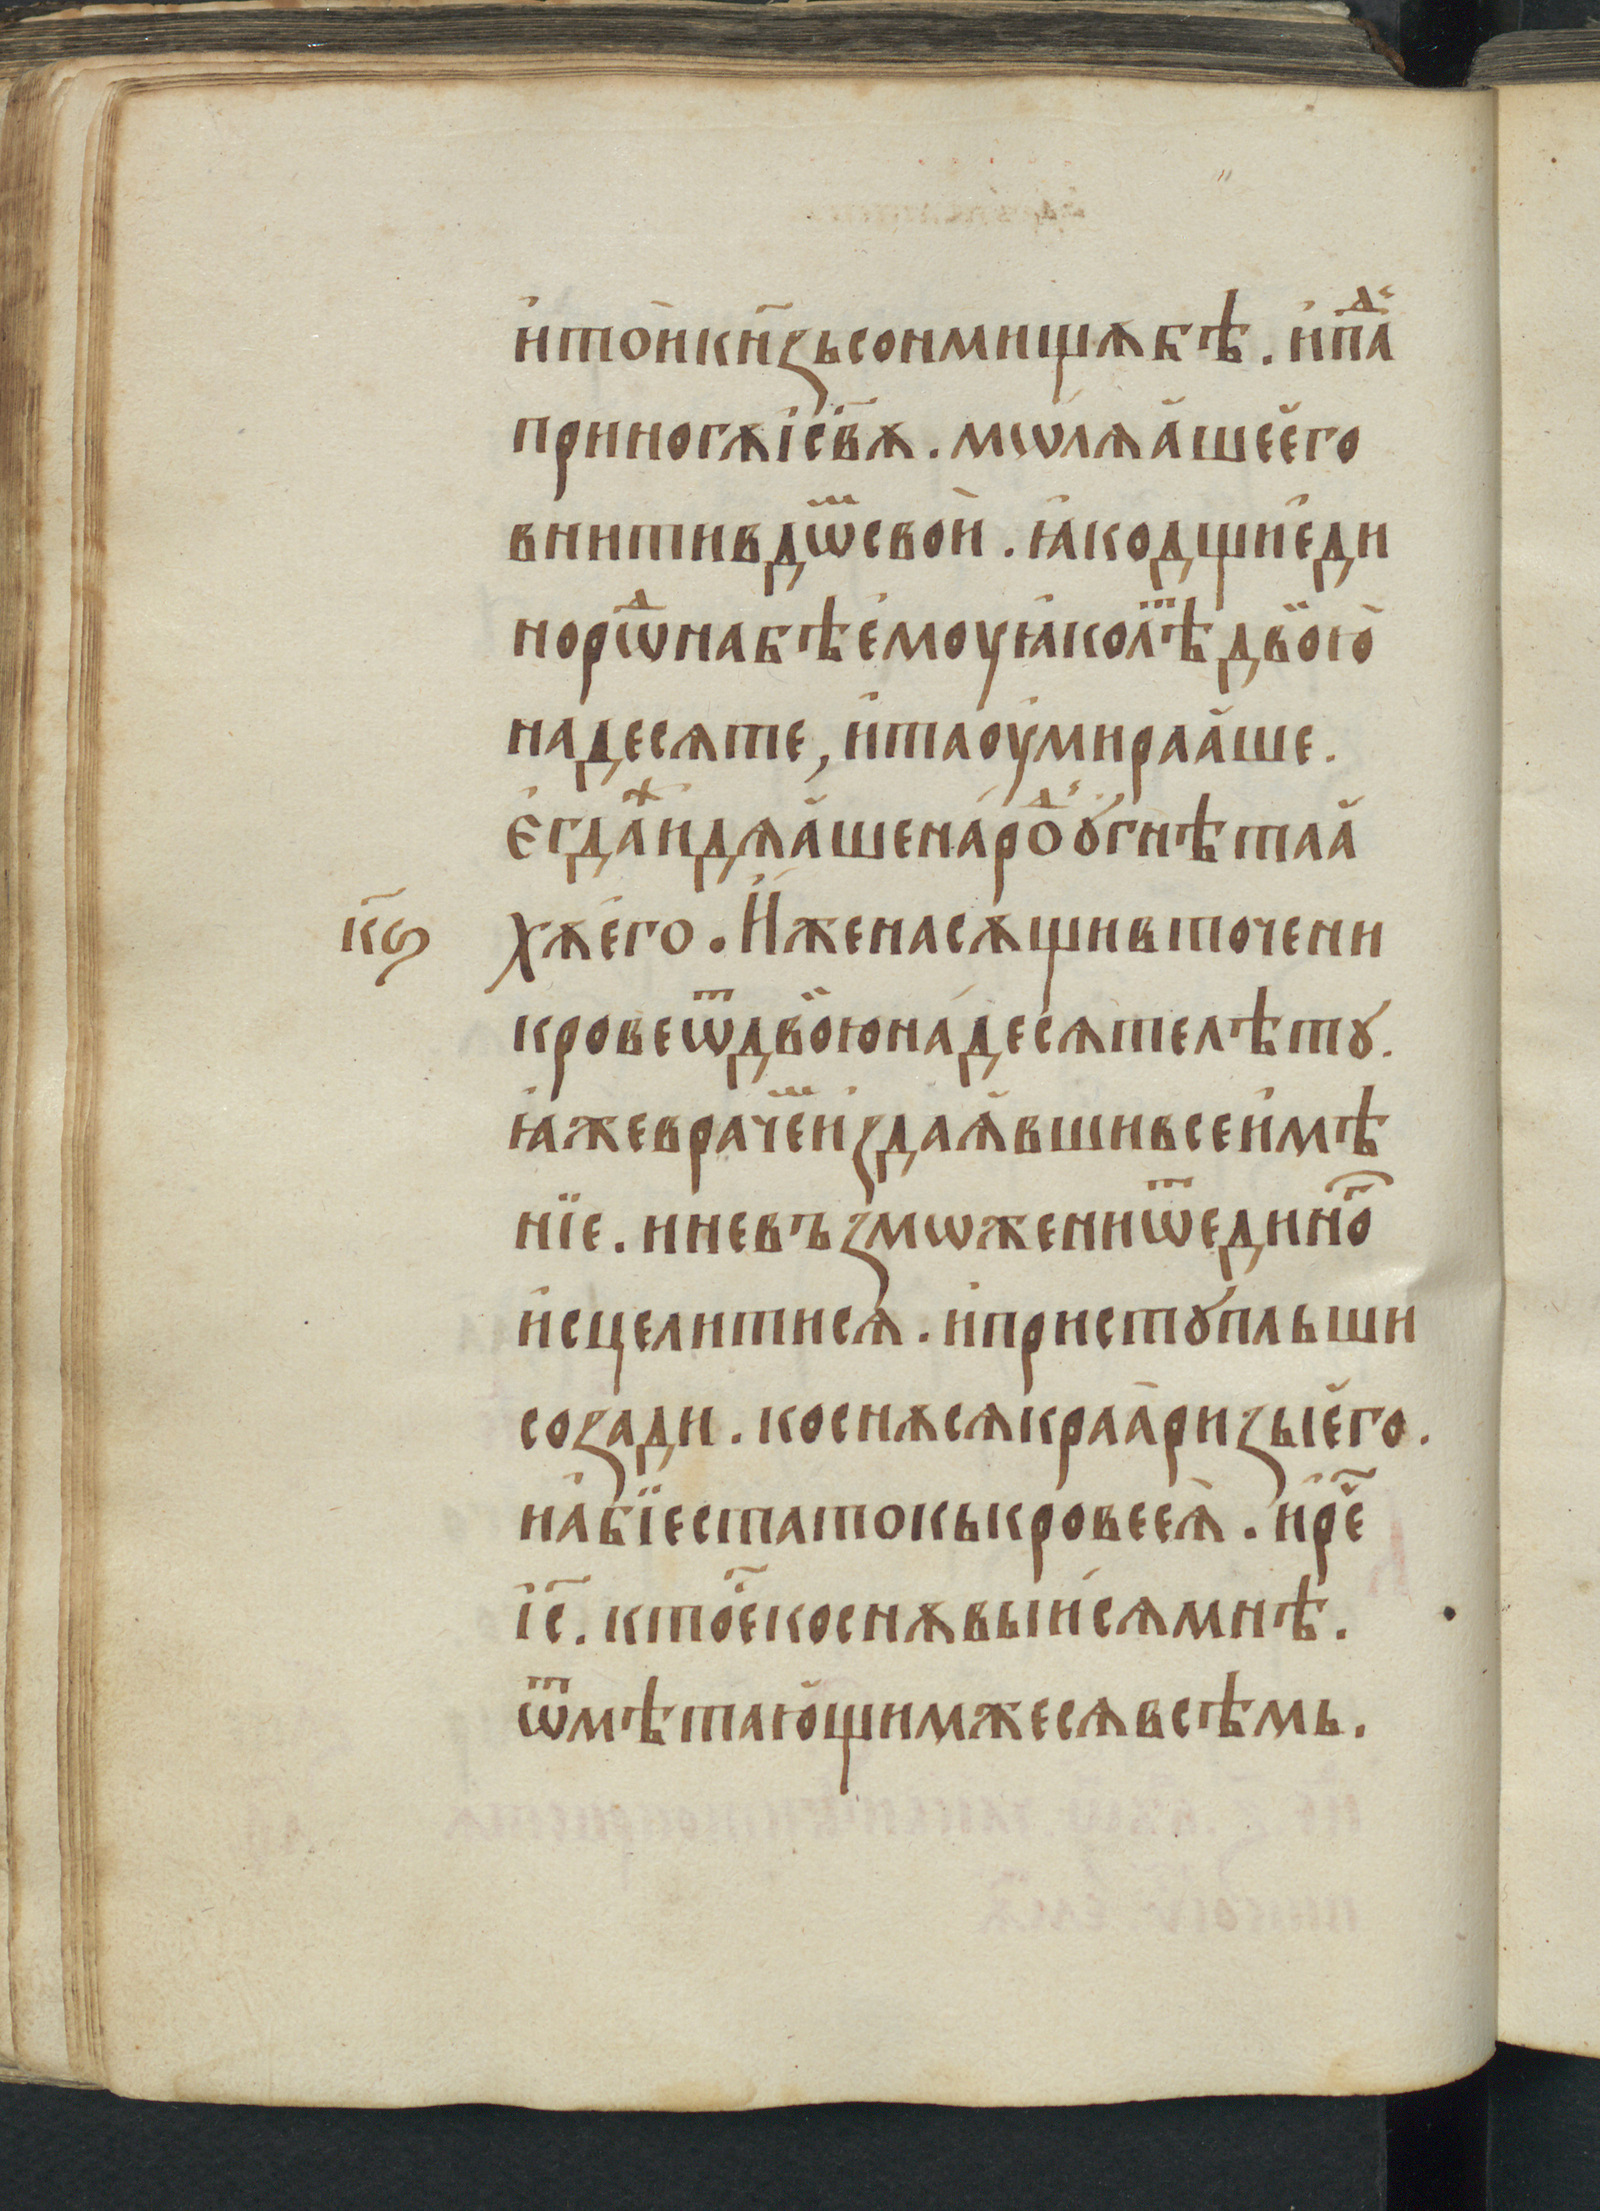 и҆тои҆кн҃ꙁьсонмищѫбѣ. и҆паⷣ
приногѫі҆с҃вѫ. мѡлѧа҆шеего
внитивдѡⷨсвои҆. ꙗ҆кодщиедѝ
норѡⷣнабѣе҆моуꙗ҆колⷮѣдвою̀
надесѧте, и҆таоу҆мираа҆ше.
є҆гдаⷤидѧа҆шенарѡⷣꙋгнѣтаа
к҃ѕ хѫе҆го. И҆женасѫщивточени
кровеѿдвоюнадесѧтелѣтꙋ.
ꙗ҆жеврачеⷨиꙁдаѧ҆вшивсеи҆мѣ
нїе. иневъꙁмѡжениѿедино҃
и҆сцелитисѧ̀. и҆пристꙋпльши
соꙁади. коснѫсѧкраа̀риꙁыего.
иа҆бїестатокькровеея̀. и҆рⷱ҇е
і҆с҃. ктоⷭ҇екоснѫвыи҆сѧмнѣ.
ѿмѣтаю҆щимжесѧвсѣмь.